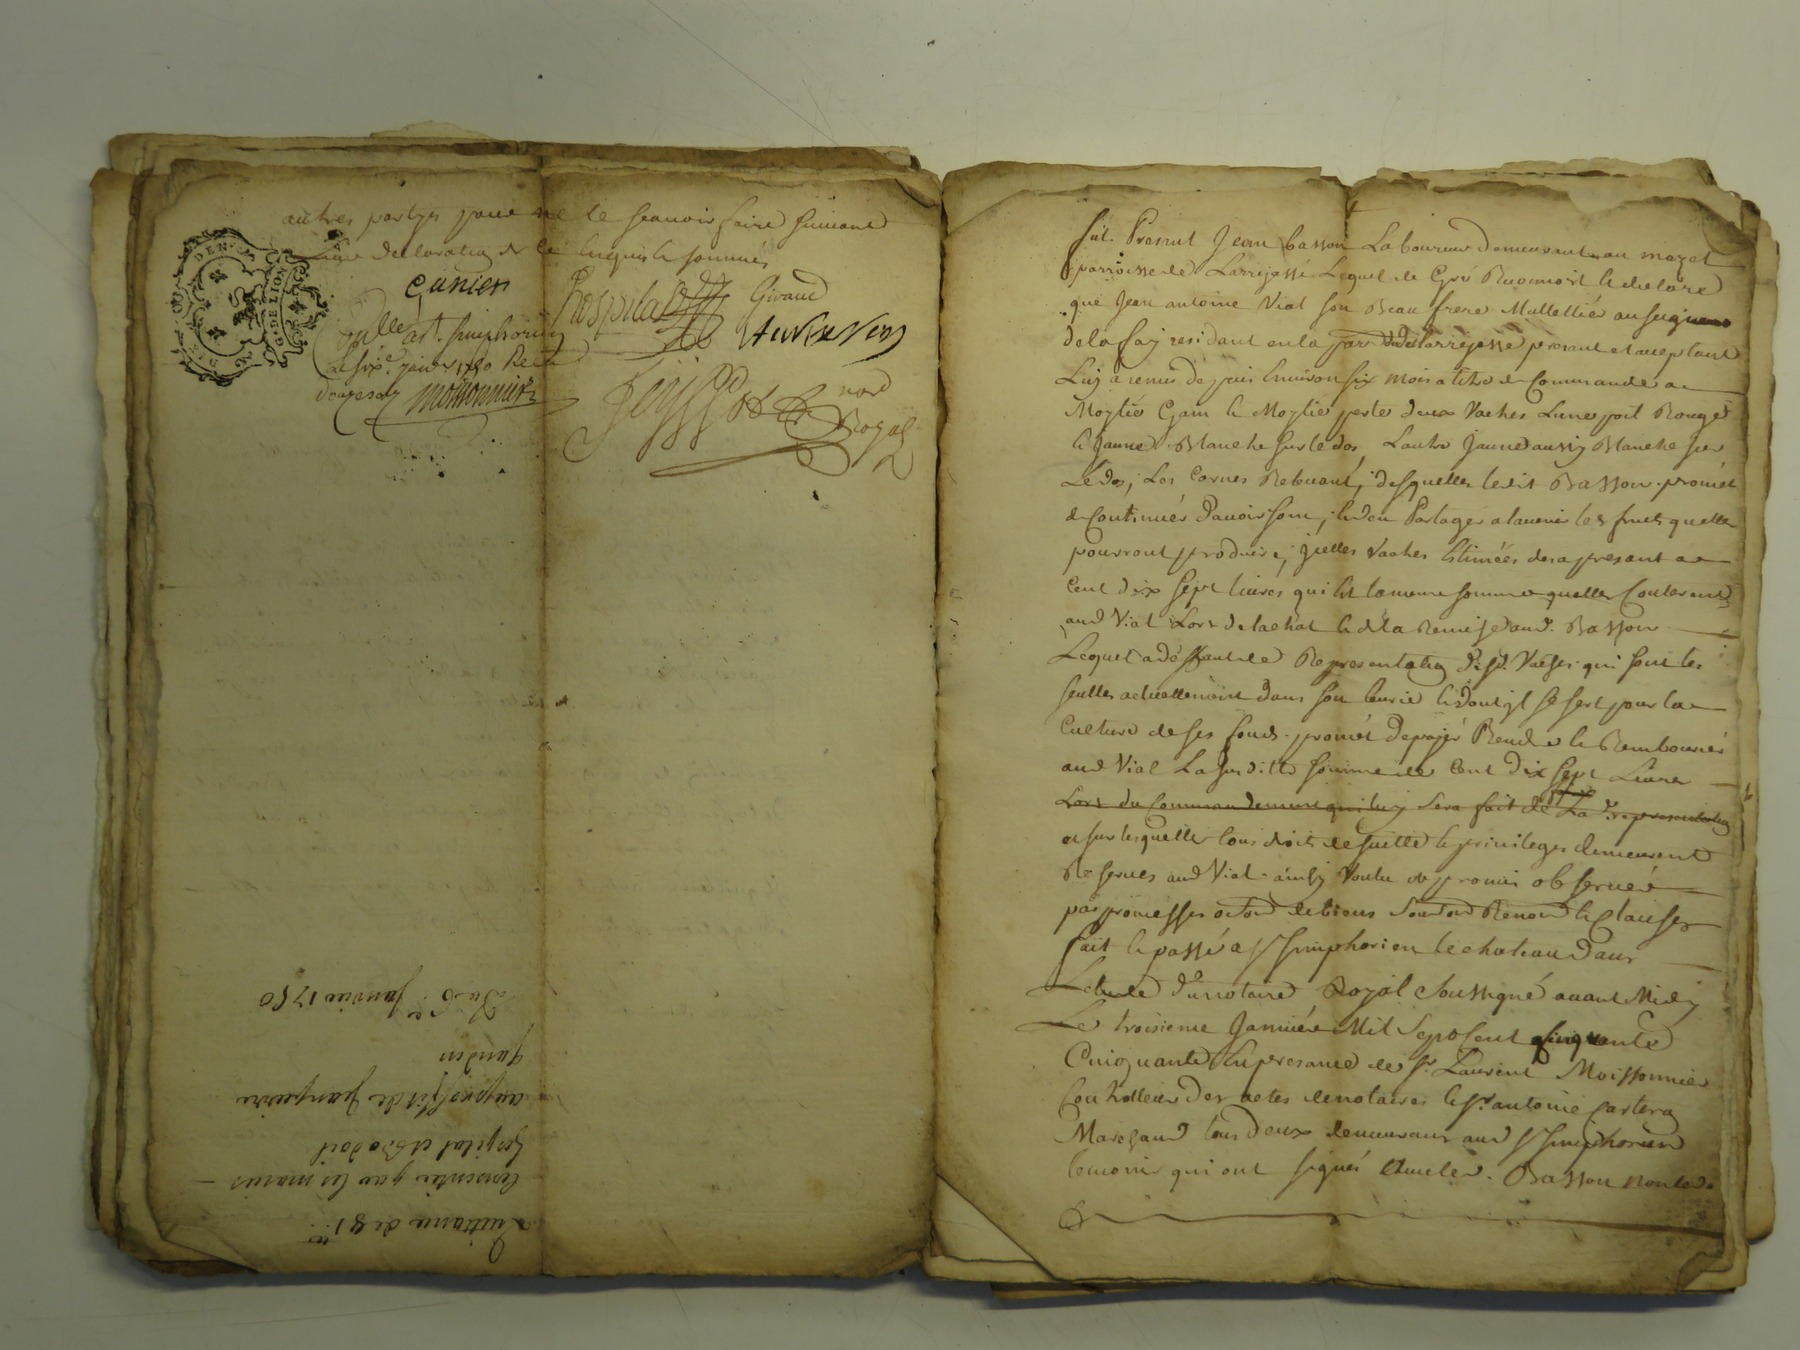 autres partyes pour ne le scauoir faire suiuant
Leur declaration de ce Enquis & sommés
canier
hospital
Giraud
Con.lle a St. Simphorien
Le six.e janier 1750 Reçu
douze sols
moissonnier
nore
Royal
GEN. DE LION
Du 6.e Januier 1750
jandin
au proffit de jean pierre
hospital
consentie par les mariés
Quittance de 81.ll
fut Present Jean basson Laboureur demeurant au mazel
parroisse de Larrajasse Lequel de Gré Reconnoit & declare
que Jean antoine Vial son Beau frere Mullettier au seigneur
de la fay residant en la par dud larrajasse present et acceptant
Luy a remis depuis Enuiron six mois a titre de Commande a
Moytié Gain & Moytié perte deux Vaches Lune poil Rouge
& Jaune Blanche sur le dos, Lautre Jaune aussy Blanche sur
Le dos, Les Cornes desquelles ledit Basson promet
de Continuer dauoir soin, & den Partager a lauenir les fruits quelles
pourront produire, jcelles Vaches Estimées des a present a
Cent dix sept Liures qui est la meme somme quelles Couterent
aud Vial Lors de lachat & de la Remise aud. Basson
Lequel a deffaut de Representation desd. Vaches qui sont les
seulles actuellement dans son Ecurie & dont jl se sert pour la
Culture de ses fonds promet de payer Rendre & Rembourser
aud Vial La susditte somme de Cent dix sept Liures
Lors du Commandement qui luy sera fait de La d. representation
et sur lesquelles tous droits de suitte & priuileges demeurent
Reserués aud Vial ainsy Voulu et promis obseruer
par promesses de biens Renon & clauses
fait & passé a St Simphorien le chateau dans
Letude du notaire Royal soussigné auant Midy
Le troisieme Januier Mil Sept Cent cinquante
Cinquante En presence de Sr. Laurent Moissonnier
Controlleur des actes de notaires & Sr. antoine
Marchand tous deux demeurant aud St Simphorien
temoins qui ont signés & Basson non led.